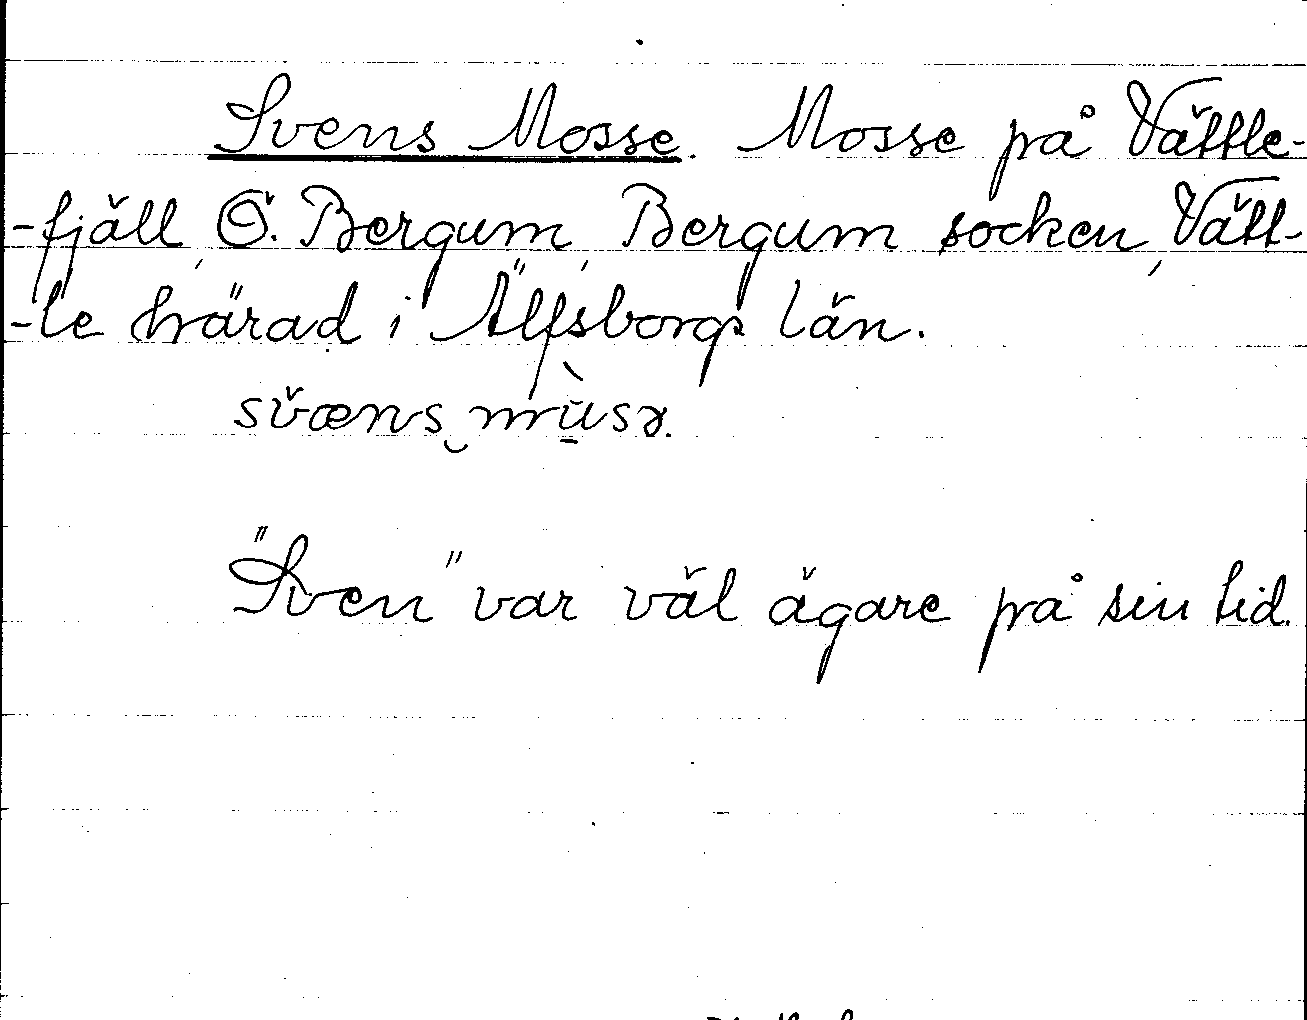 Svens Mosse. Mosse på Vättle-
-fjäll, Ö. Bergum, Bergum socken, Vätt-
-le härad i Älfsborgs län.
svæns mùsɤ.
"Sven" var väl ägare på sin tid.